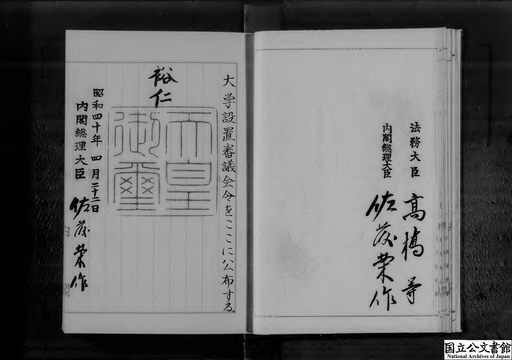 大学設置審議会令をここに公布する。
裕仁
天皇御璽
昭和四十年四月二十二日
内閣総理大臣 佐藤榮作
法務大臣 高橋等
内閣総理大臣 佐藤榮作
国立公文書館
National Archives of Japan